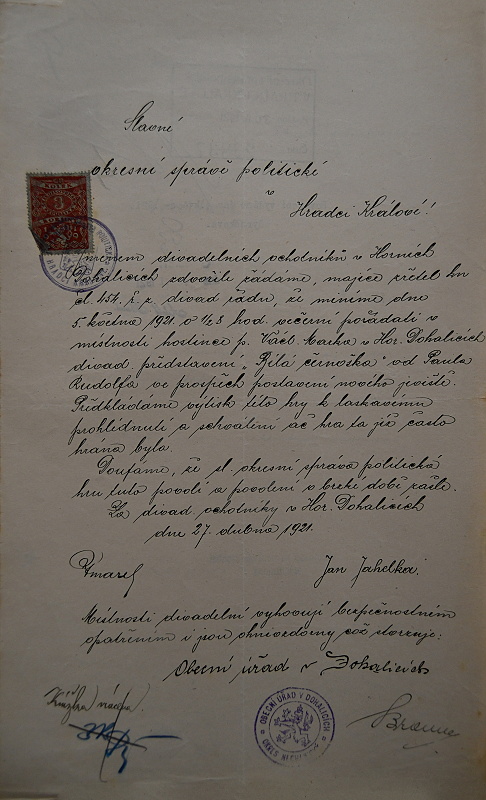 Slavné
okresní správě politické
v
Hradci Králové!
KOLEK
3
Jménem divadelních ochotníků v Horních
Dohalicích zdvořile žádáme, majíce zřetel ku
čl. 454. ř. z. divad. řádu, že míníme dne
5. května 1921. o ½8 hod. večerní pořádati v
místnosti hostince p. Václ. Macha v Hor. Dohalicích
divad. představení „Bílá černoška" od Paula
Rudolfa ve prospěch postavení nového jeviště.
Předkládáme výtisk této hry k laskavému
prohlédnutí a schválení ač hra ta již často
hrána byla.
Doufáme, že sl. okresní správa politická
hru tuto povolí a povolení v brzké době zašle.
Za divad. ochotníky v Hor. Dohalicích
dne 27. dubna 1921.
Jan Jahelka.
Místnosti divadelní vyhovují bezpečnostním
opatřením i jsou ohnivzdorny což stvrzuje:
Obecní úřad v Dohalicích
OBECNÍ ÚŘAD V DOHALICÍCH
OKRES